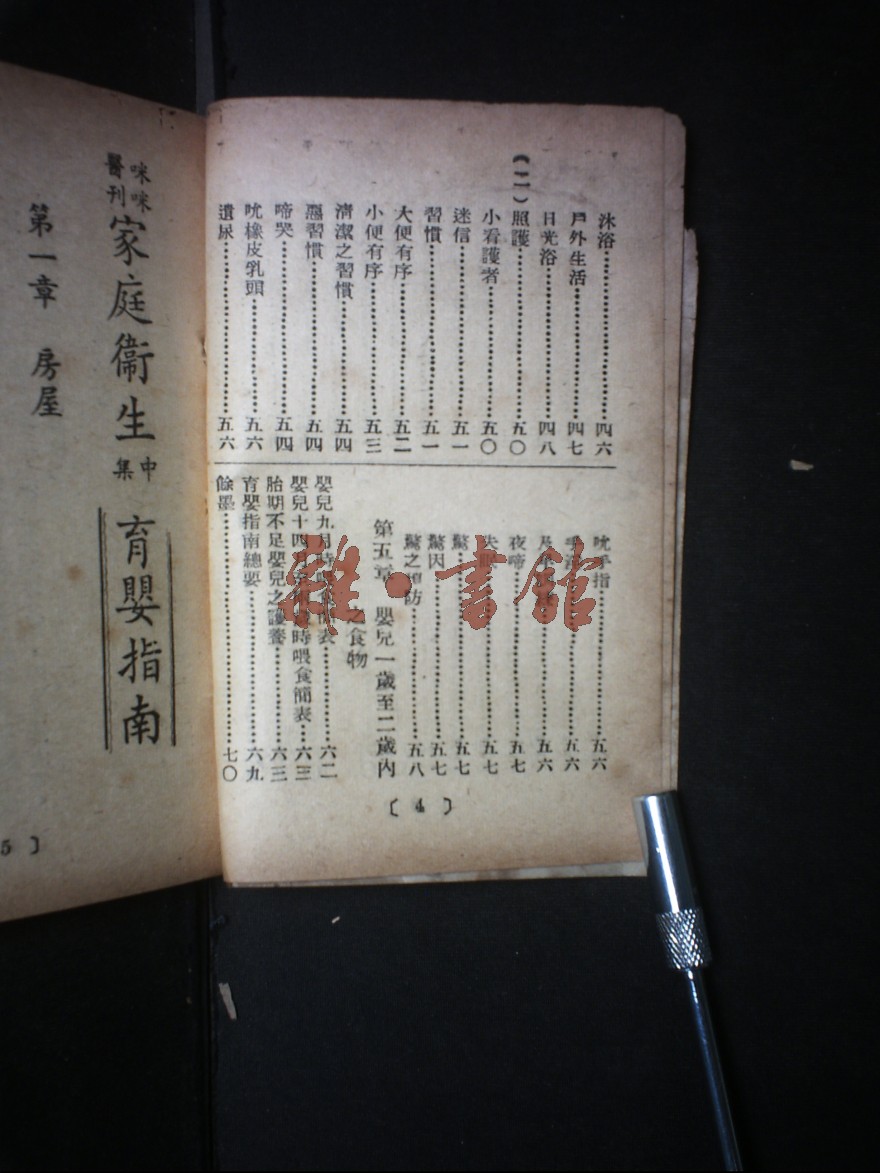 沐浴⋯⋯四六
戶外生活⋯⋯四七
日光浴⋯⋯四八
(二)照護⋯⋯五〇
小看護者⋯⋯五〇
迷信⋯⋯五一
習慣⋯⋯五一
大便有序⋯⋯五二
小便有序⋯⋯五三
清潔之習慣⋯⋯五四
惡習慣⋯⋯五四
啼哭⋯⋯五四
吮橡皮乳頭⋯⋯五六
遺尿⋯⋯五六
吮手指⋯⋯五六
五六
五六
夜啼⋯⋯五七
五七
驚⋯⋯五七
驚因⋯⋯五七
驚之預防⋯⋯五八
第五章 嬰兒一歲至二歲內
之食物
嬰兒九月時喂食簡表⋯⋯六二
嬰兒十四月至 時喂食簡表⋯⋯六三
胎期不足嬰兒之護養⋯⋯六三
育嬰指南總要⋯⋯六九
餘墨⋯⋯七〇
〔4〕
咪咪
醫刊
家庭衞生
中集
育嬰指南
第一章 房屋
5〕
雜·書館